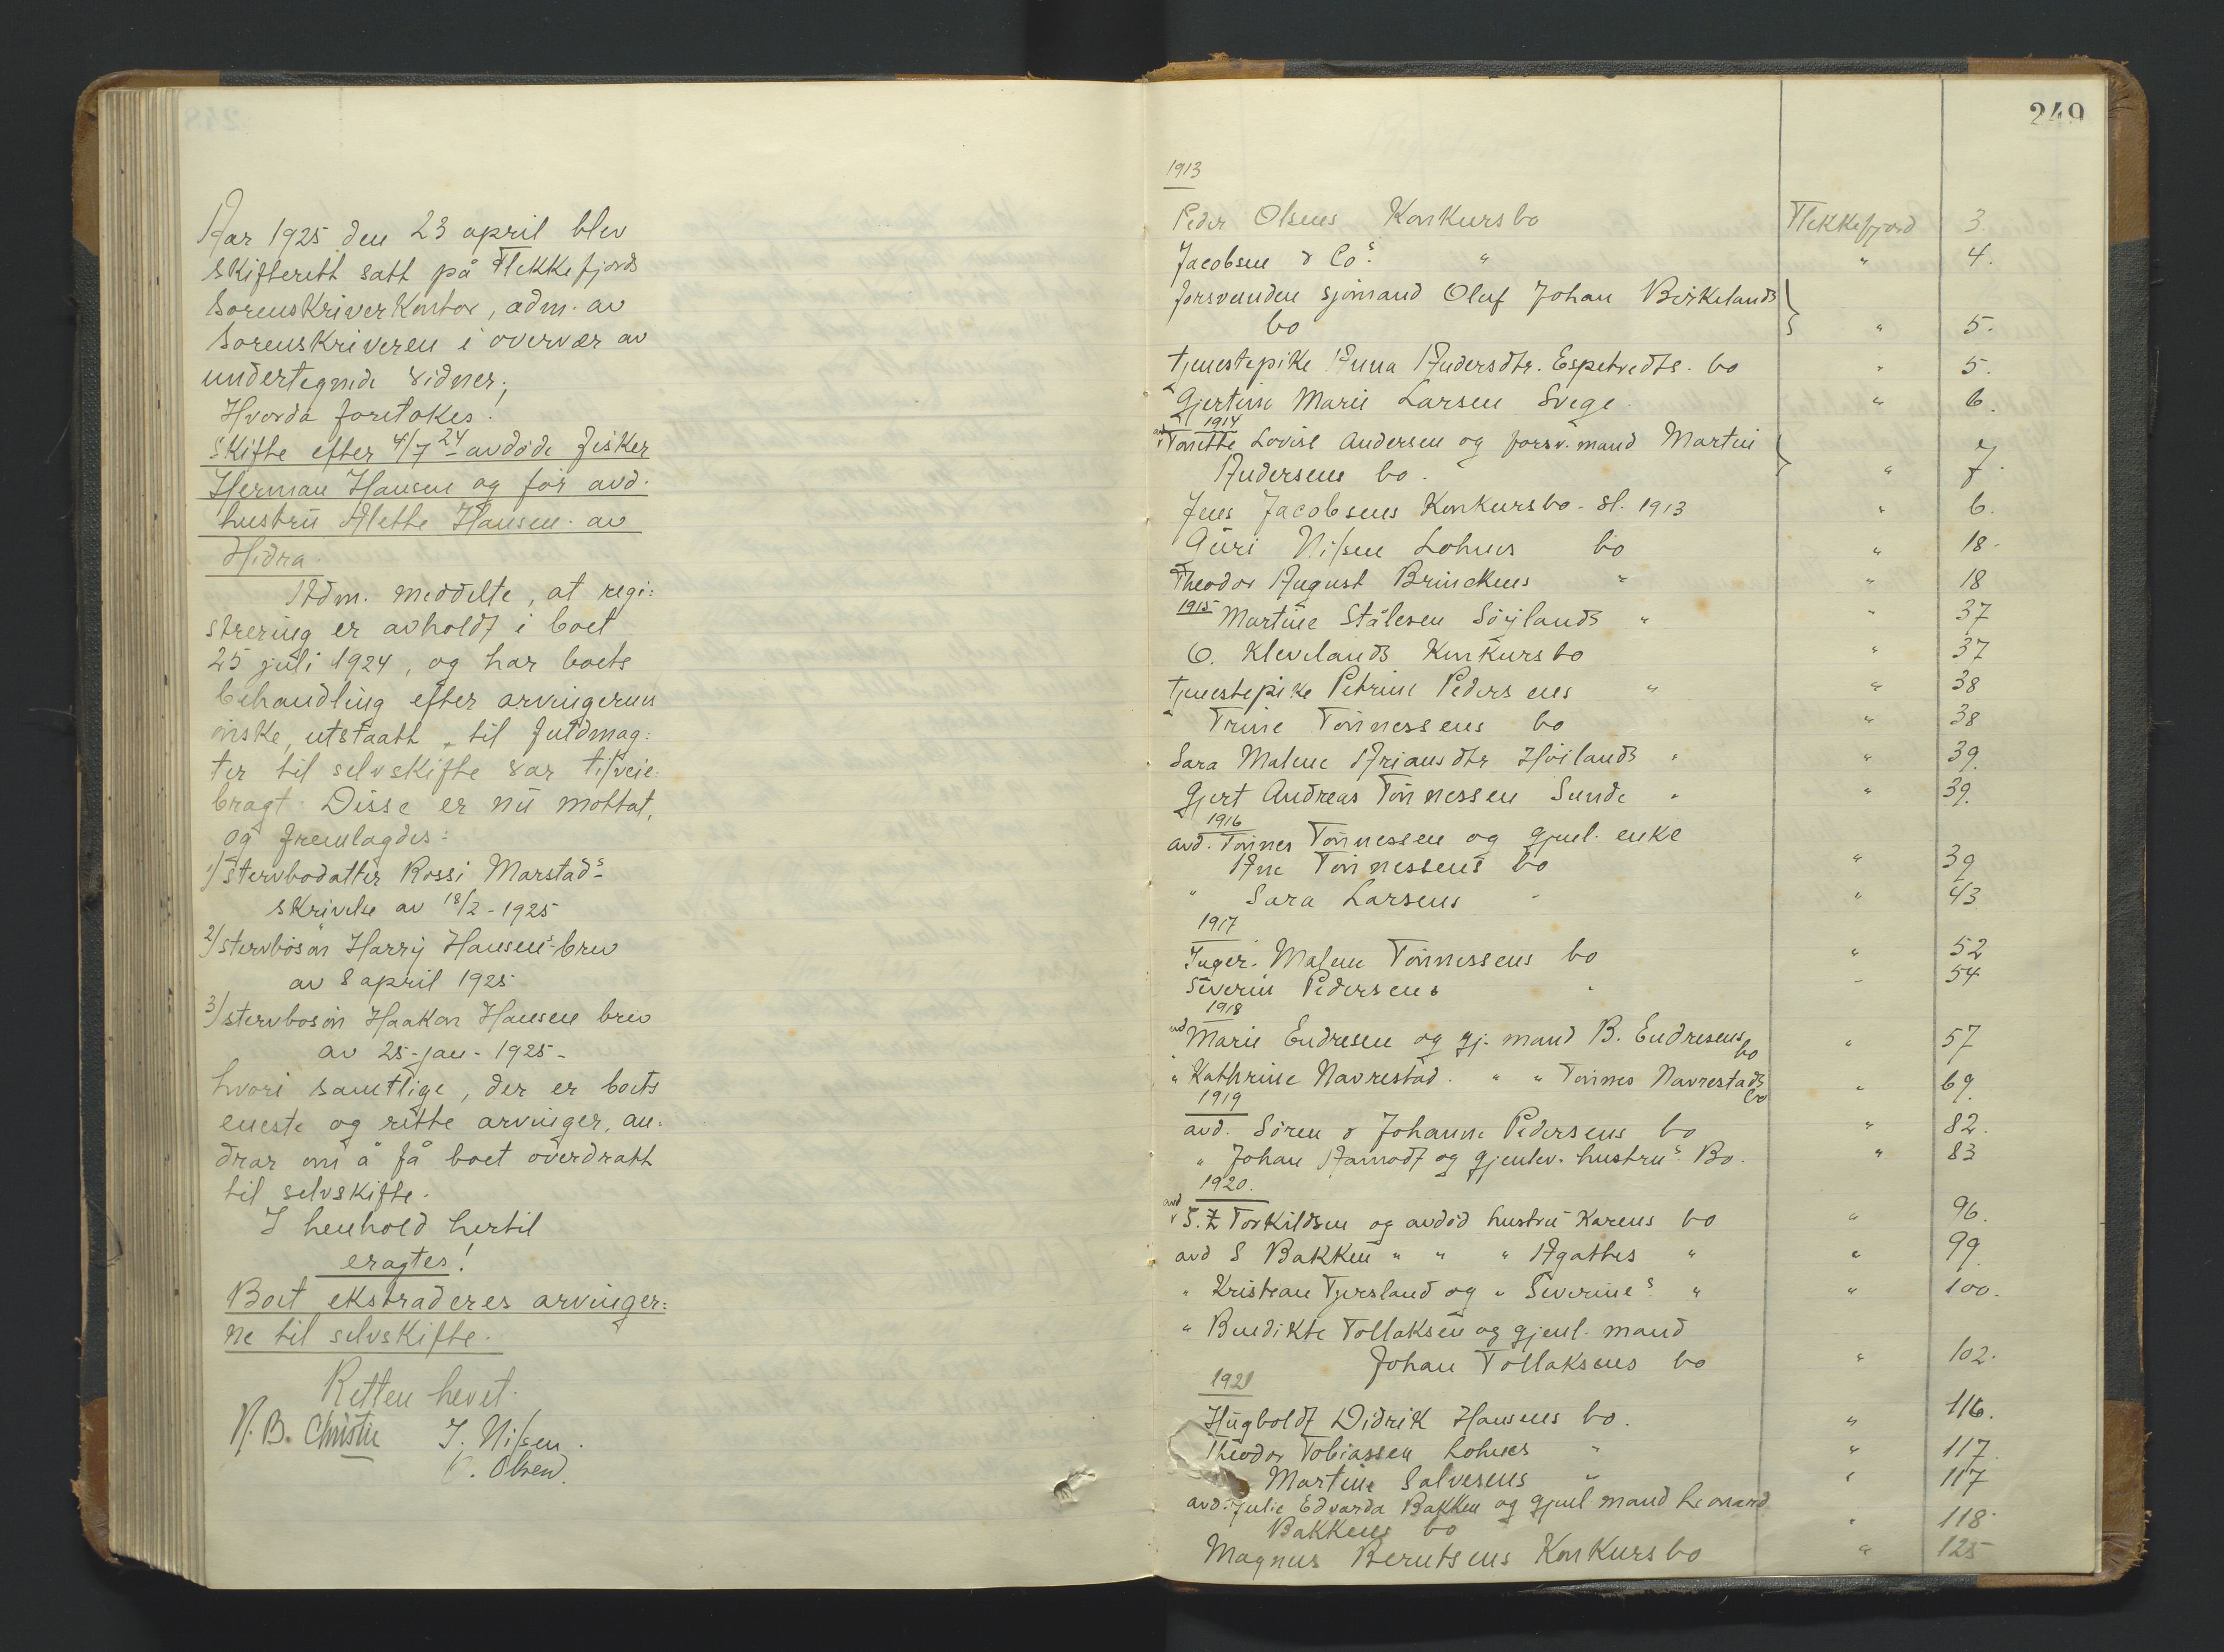 Aar 1925 den 23 april blev
skifterett satt på Flekkefjords
sorenskriverkontor, adm. av
sorenskriveren i overvær av
undertegnede vidner;
Hvorda foretokes:
Skifte efter 4/7 24 avdøde fisker
Herman Hansen og før avd.
hustru Alette Hansen av
Hidra.
Adm. meddelte, at regi=
strering er avholdt i boet
25 juli 1924, og har boets
behandling efter arvingernes
ønske, utstaatt, til fuldmag=
ter til selvskifte var tilveie=
bragt. Disse er nu mottat,
og fremlagdes:
1/ stervbodatter Rossi Marstad's
skrivelse av 18/2 - 1925
2/ stervbosøn Harry Hansen's brev
av 8 april 1925
3/ stervbosøn Haakon Hansen brev
av 25-jan-1925-
hvori samtlige, der er boets
eneste og rette arvinger, an=
drar om å få boet overdratt
til selvskifte.
I henhold hertil
eragtes!
Boet ekstraderes arvinger=
ne til selvskifte.
Retten hevet.
N. B. Christie J. Nilsen.
O. Olsen.
249
1913
Peder Olsens Konkursbo Flekkefjord 3.
Jacobsen & Co's " " 4.
forsvunden sjømand Oluf Johan Birkelands
bo " 5.
tjenestepike Anna Andersdtr. Espetvedts. bo " 5.
" Gjertine Marie Larsen Svege " 6.
1914
avd. Tonette Lovise Andersen og forsv. mand Martin
Andersens bo. " 7.
Jens Jacobsens Konkursbo - sl. 1913 " 6.
Guri Nilsen Lohnes bo " 18.
Theodor August Brinckens " " 18
1915 Martine Stålesen Söylands " " 37
O. Klevelands Konkursbo " 37
tjenestepike Petrine Pedersens " " 38
" Trine Tönnessens bo " 38
Sara Malene Ariansdtr Höilands " " 39.
Gjert Andreas Tönnessen Sunde " " 39.
1916
avd. Tönnes Tönnessen og gjenl. enke
Ane Tönnessens bo " 39
" Sara Larsens " " 43
1917
Inger Malene Tönnessens bo " 52
Severin Pedersens " " 54
1918
avd Marie Endresen og gj. mand B. Endresens bo " 57
" Kathrine Navrestad. " " Tönnes Navrestads bo " 69.
1919
avd. Sören & Johanne Pedersens bo " 82.
" Johan Aamodt og gjenlev. hustru's Bo. " 83
1920.
avd S. Z Torkildsen og avdöd hustru Karens bo " 96.
avd S Bakken " " " Agathes " " 99
" Kristian Tjersland og " Severine's " " 100.
" Benedikte Tollaksen og gjenl. mand
Johan Tollaksens bo " 102.
1921
Hugboldt Didrik Hansens bo. " 116.
Theodor Tobiassen Lohnes " " 117.
Martine Salvesens " " 117
avd. Julie Edvarda Bakken og gjenl mand Leonard
Bakkens bo " 118.
Magnus Berntsens Konkursbo " 125